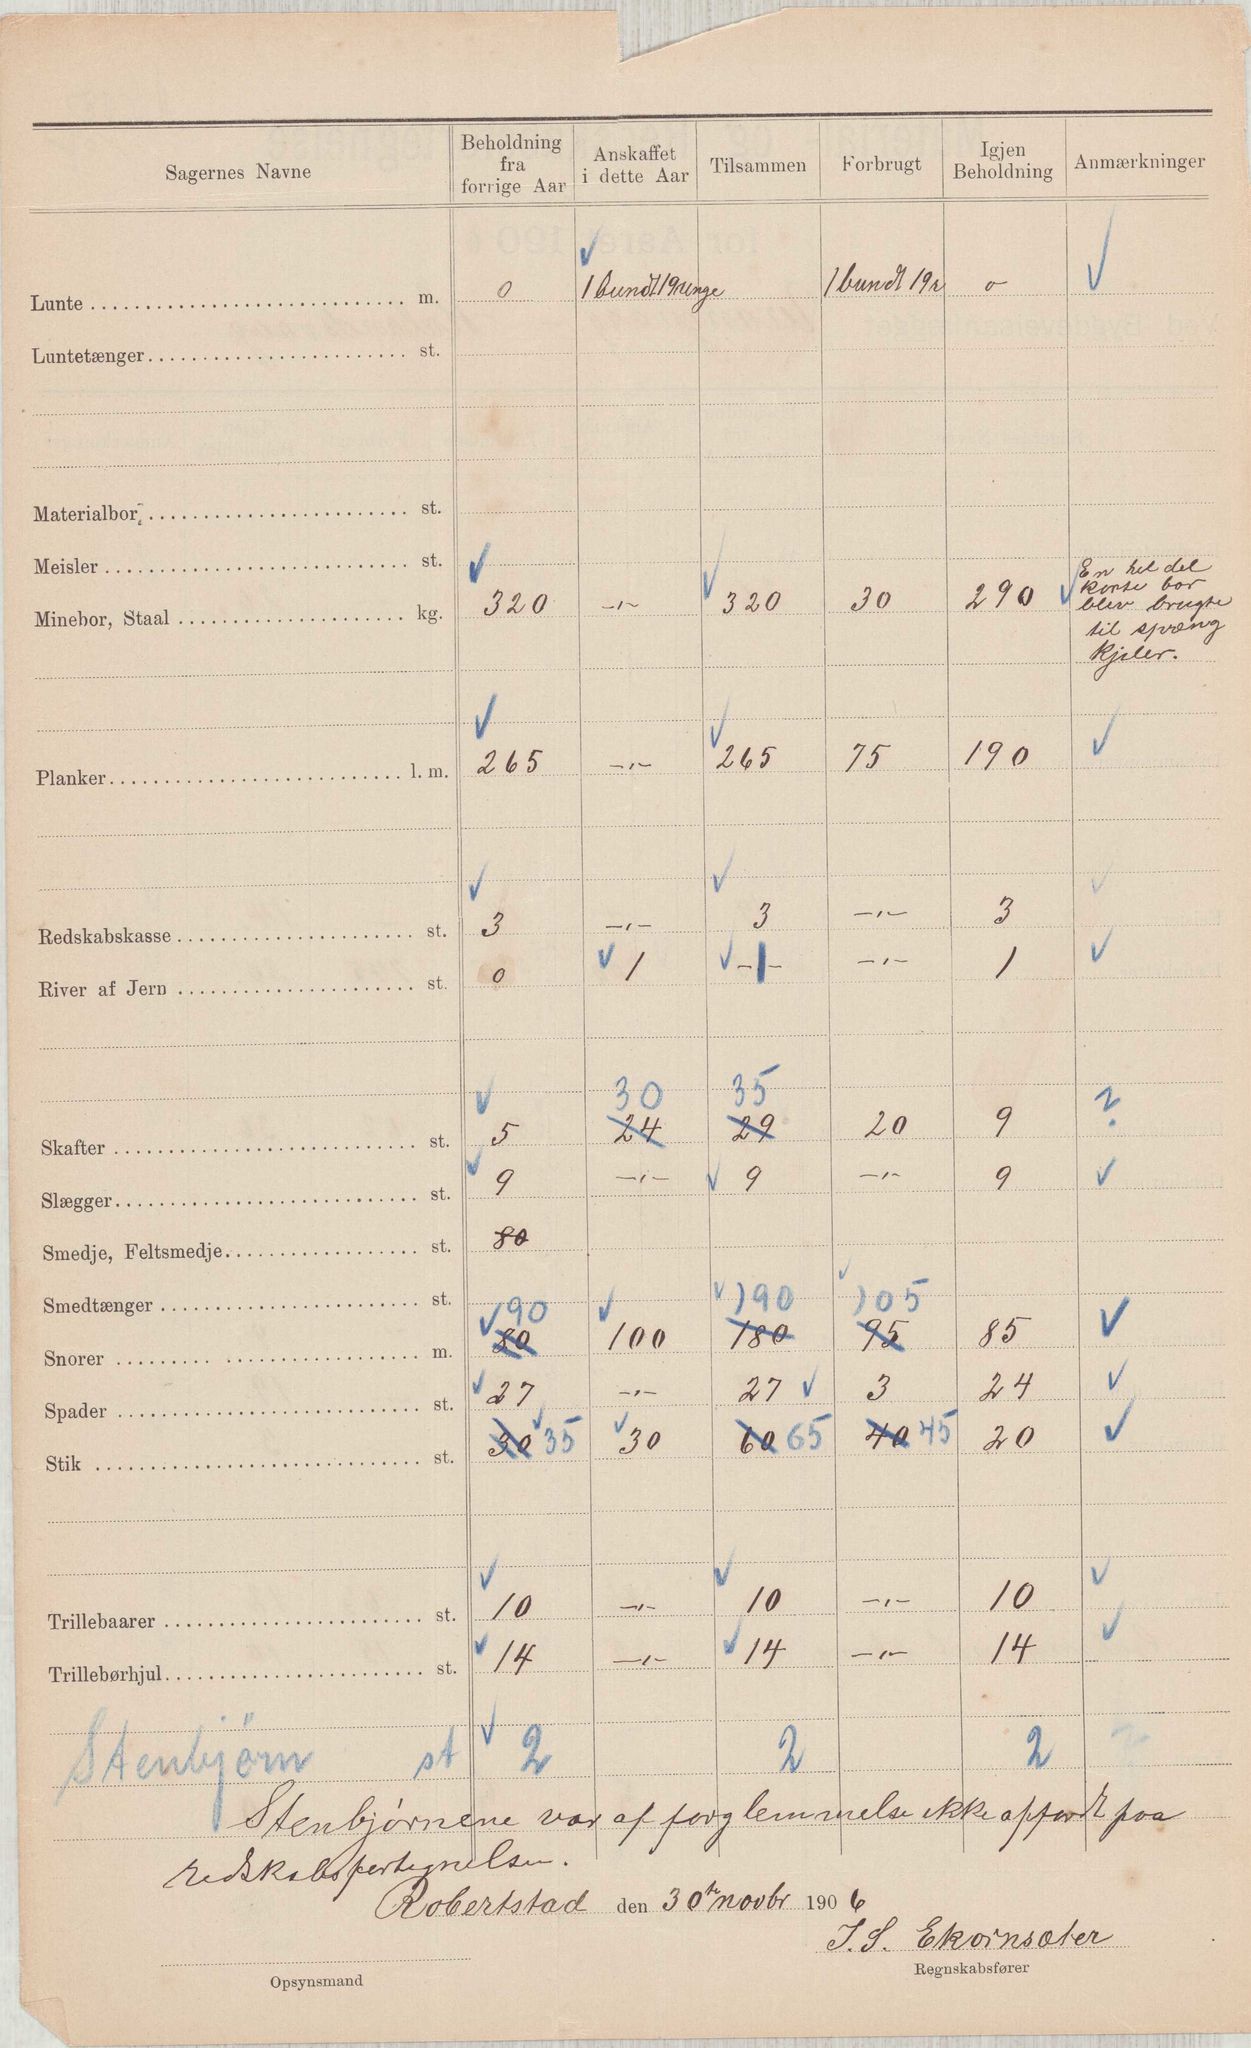 Sagernes Navne | Beholdning fra forrige Aar | Anskaffet i dette Aar | Tilsammen | Forbrugt | Igjen Beholdning | Anmærkninger
Lunte m. | 0 | ✓ 1 bundt 19 ringe | | 1 bundt 19 r | 0 | ✓
Luntetænger st.
Materialbor st.
Meisler st.
Minebor, Staal kg. | ✓ 320 | -„- | ✓ 320 | 30 | 290 | ✓ En hel del korte bor blev brugte til spræng kjiler.
Planker l. m. | ✓ 265 | -„- | ✓ 265 | 75 | 190 | ✓
Redskabskasse st. | ✓ 3 | -„- | ✓ 3 | -„- | 3 | ✓
River af Jern st. | 0 | ✓ 1 | ✓ 1 | -„- | 1 | ✓
30 | 35
Skafter st. | ✓ 5 | 24 | 29 | 20 | 9 | ?
Slægger st. | ✓ 9 | -„- | ✓ 9 | -„- | 9 | ✓
Smedje, Feltsmedje st. | 80
Smedtænger st.
90 | ✓ 190 | ✓ 105
Snorer m. | ✓ 80 | ✓ 100 | 180 | 95 | 85 | ✓
Spader st. | ✓ 27 | -„- | 27 ✓ | 3 | 24 | ✓
Stik st. | 30 ✓ 35 | ✓ 30 | 60 65 | 40 45 | 20 | ✓
Trillebaarer st. | ✓ 10 | -„- | ✓ 10 | -„- | 10 | ✓
Trillebørhjul st. | ✓ 14 | -„- | ✓ 14 | -„- | 14 | ✓
Stenbjørn st | ✓ 2 | | 2 | | 2
Stenbjørnene var af forglemmelse ikke opført paa
redskabsfortegnelsen.
Robertstad den 30te novbr 1906
J. S. Ekornsæter
Opsynsmand Regnskabsfører